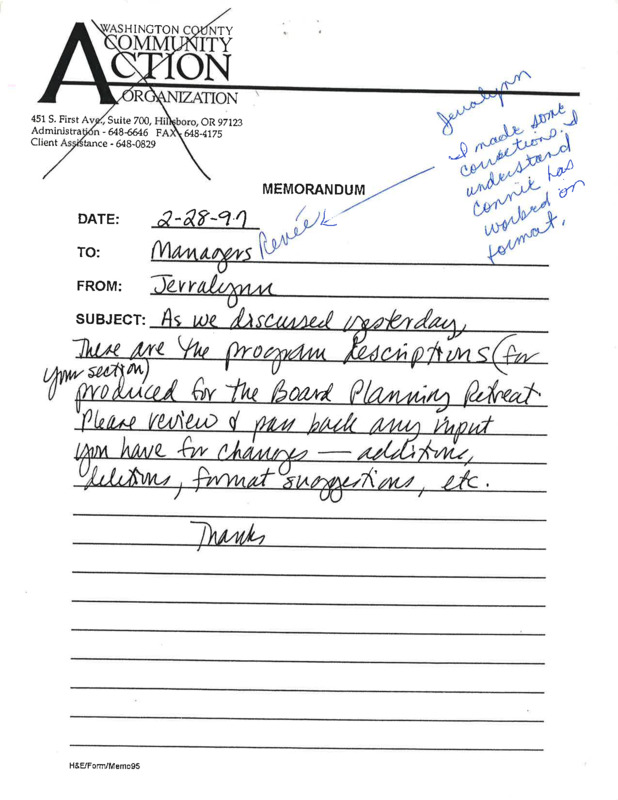 WASHINGTON COUNTY
COMMUNITY
ACTION
ORGANIZATION
451 S. First Ave., Suite 700, Hillsboro, OR 97123
Administration - 648-6646 FAX - 648-4175
Client Assistance - 648-0829
Jerralynn
I made some
corrections. I
understand
Connie has
worked on
format.
MEMORANDUM
DATE: 2-28-97
TO: Managers Renée
FROM: Jerralynn
SUBJECT: As we discussed yesterday,
These are the program descriptions (for
your section)
produced for the Board Planning Retreat
Please review & pass back any input
you have for changes — additions,
deletions, format suggestions, etc.
Thanks
H&E/Form/Memo95